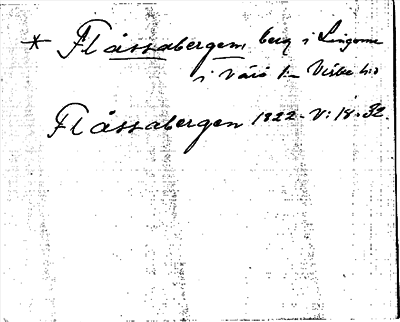 * Flåssabergem, berg i Lingome
i Värö sn Viske hd
Flåssabergen 1822. V: 18. 32.